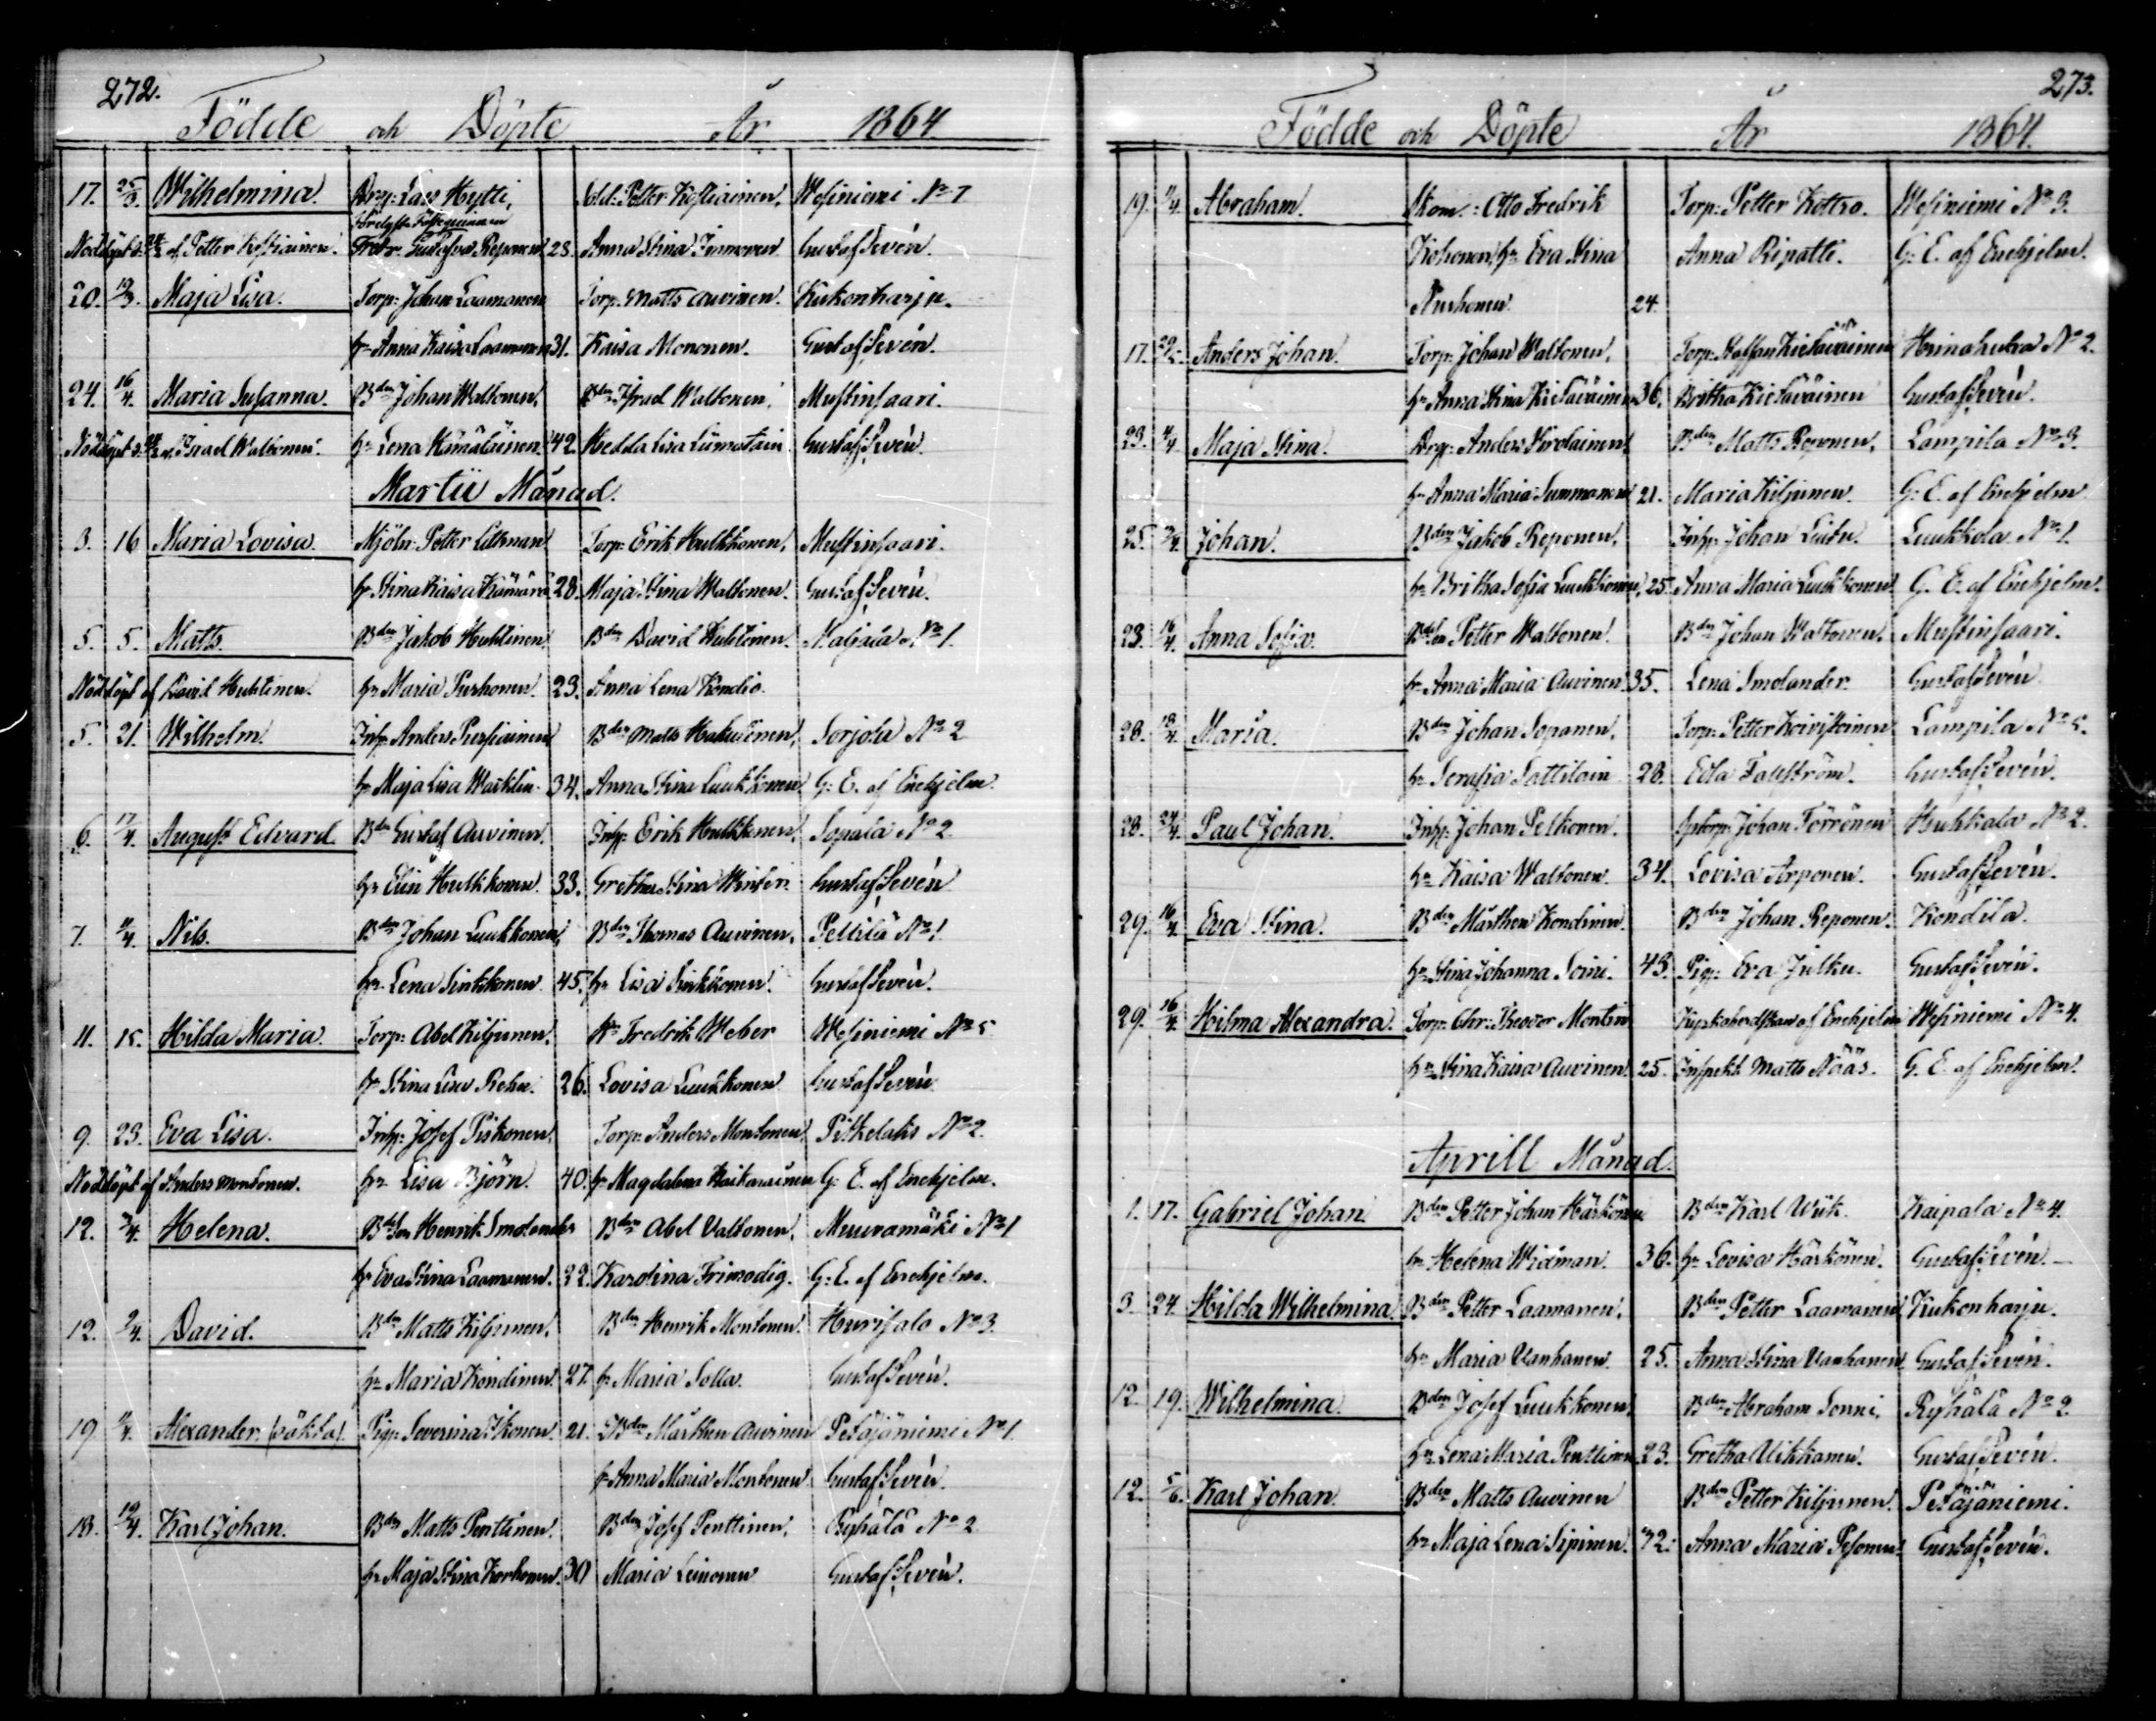 272.
Födde och Döpte År 1864
17. 25/3. Wilhelmina. Drg: Lars Hytti, Sold: Petter Kostiainen, Wesiniemi No 7
Nöddöpt d. 24/2 af Petter Kostiainen. Gustafva Reponen 23. Anna Stina Immonen Gustaf Sevén.
20. 13/3. Maja Lisa. Torp: Johan Laamanen Torp. Matts Auvinen. Kukonharju.
hr Anna Kaisa Laamanen 31. Kaisa Mononen. Gustaf Sevén.
24. 16/4. Maria Susanna. Bden Johan Waltonen, Bden Israel Waltonen, Mustinsaari.
Nöddöpt d. af Israel Waltonen. hr Lena Hämäläinen. 42. Hedda Lisa Liimatain Gustaf Sevén.
Martii Månad.
3. 16 Maria Lovisa. Mjöln: Petter Littman Torp: Erik Hulkkonen, Mustinsaari.
hr Stina Kaisa Kämärä 28. Maja Stina Waltonen. Gustaf Sevén.
5. 5. Matts. Bden Jakob Huhtinen Bden David Huhtinen. No 1.
Nöddöpt af David Huhtinen. hr Maria Purhonen. 23. Anna Lena Kondio.
5. 21. Wilhelm. Inh: Anders Pursiainen Bden Matts Hakulinen, Sorjola No 2
hr Maja Lisa Wacklin. 34. Anna Stina Luukkonen G: E. af Enehjelm.
6. 17/4. August Edvard. Bden Gustaf Auvinen. Inh: Erik Hulkkonen, Sopala No 2.
hr Elin Hulkkonen. 33. Gretha Stina Winter. Gustaf Sevén
7. 4/4. Nils. Bden Johan Luukkonen, Bden Thomas Auvinen, Pellilä No 1
hr Lena Sinkkonen 45. hr Lisa Sinkkonen. Gustaf Sevén.
11. 15. Hilda Maria. Torp: Abel Kiljunen. Hr Fredrik Weber Wesiniemi No 5
hr Stina Lisa Rehn. 26. Lovisa Luukkonen Gustaf Sevén.
9. 23. Eva Lisa. Inh: Josef Piskonen. Torp: Anders Montonen. Pitkelaks No 2.
Nöddöpt af Anders Montonen. hr Lisa Björn. 40. hr Magdalena Haikarainen G: E. af Enehjelm.
12. 3/4. Helena. Bdeson Henrik Smolander Bden Abel Valtonen, Muuramäki No 1
hr Eva Stina Laamanen. 22. Karolina Frimodig. G: E. af Enehjelm.
12. 2/4. David. Bden Matts Kiljunen. Bden Henrik Montonen. Hurisalo No 3.
hr Maria Kondinen. 27. hr Maria Solla. Gustaf Sevén.
19. 4/4. Alexander (oäkta). Pig: Severina Ikonen. 21. Bden Mårthen Auvinen Petäjäniemi No 1.
hr Anna Maria Montonen Gustaf Sevén.
18. 10/4. Karl Johan. Bden Matts Penttinen. Bden Josef Penttinen, Ryhälä No 2.
hr Maja Stina Korhonen. 30 Maria Leinonen Gustaf Sevén.
273.
Födde och Döpte År 1864.
19. 4/4. Abraham. Otto Fredrik Torp: Petter Kottro. Wesiniemi No 3.
Kohonen hr Eva Stina Anna Ripatti. G: E. af Enehjelm.
Purhonen 24.
17. 29/5. Anders Johan. Torp: Johan Waltonen, Torp: Staffan Kietäväinen Hiinahulva No 2.
hr Anna Stina Kietäväinen 36. Britha Kietäväinen Gustaf Sevén.
23. 4/4. Maja Stina. Drg: Anders Partolainen Bden Matts Reponen, Lampila No 3.
hr Anna Maria Summanen 21. Maria Kiljunen. G: E. af Enehjelm
25. 3/4. Johan. Bden Jakob Reponen, Inh: Johan Luthu. Luukkola No 1.
hr Britha Sofia Luukkonen, 25. Anna Maria Luukkonen G. E. af Enehjelm.
23. 16/4. Anna Sofia. Bdeson Petter Waltonen. Bden Johan Waltonen. Mustinsaari.
hr Anna Maria Auvinen. 35. Lena Smolander. Gustaf Sevén
28. 13/4. Maria. Bden Johan Sopanen. Torp: Petter Koivistoinen Lampila No 5.
hr Serafia Sattilain 28. Edla Fallström. Gustaf Sevén.
28. 24/4. Paul Johan. Inh: Johan Pelkonen. Johan Törrönen Huhkala No 2.
hr Kaisa Waltonen. 34. Lovisa Arponen. Gustaf Sevén.
29. 16/4. Eva Stina. Bden Mårthen Kondinen. Bden Johan Reponen. Kondila.
hr Stina Johanna Soini. 43. Pig: Eva Julku. Gustaf Sevén.
29. 16/4. Hilma Alexandra. Torp: Chr: Theodor Montin Kyrkoherdskan af Enehjelm Wesiniemi No 4.
hr Stina Kaisa Auvinen. 25. Inspekt. Matts Nääs. G. E. af Enehjelm.
Aprill Månad.
1. 17. Gabriel Johan. Bden Petter Johan Härkönen Bden Karl Wiik. Kaipala No 4.
hr Helena Widman. 36. hr Lovisa Härkönen. Gustaf Sevén.
3. 24. Hilda Wilhelmina. Bden Petter Laamanen. Bden Petter Laamanen Kukonharju.
hr Maria Vanhanen. 25. Anna Stina Vanhanen. Gustaf Sevén.
12. 19. Wilhelmina. Bden Josef Luukkonen. Bden Abraham Sonni, Ryhälä No 2.
hr Lena Maria Penttinen. 23. Gretha Ukkonen. Gustaf Sevén.
12. 5/6. Karl Johan. Bden Matts Auvinen Bden Petter Kiljunen. Petäjäniemi.
hr Maja Lena Sipinen. 42. Anna Maria Pesonen. Gustaf Sevén.